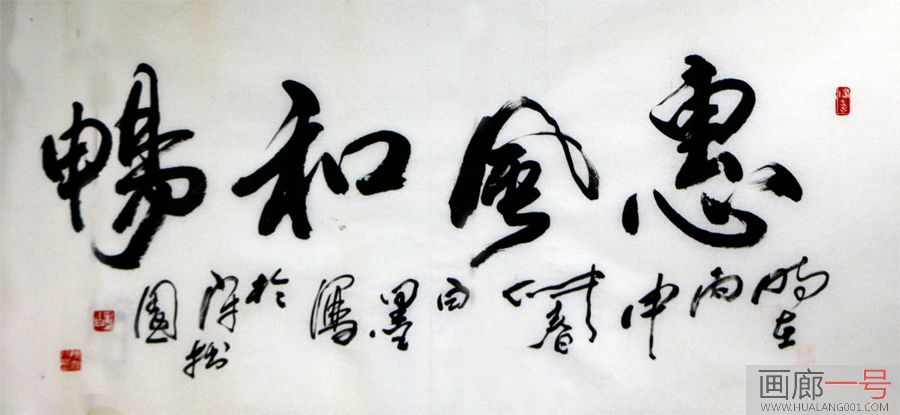 惠風和暢
时在丙申春白墨於拙園
画廊一号
WWW.HUALANG001.COM